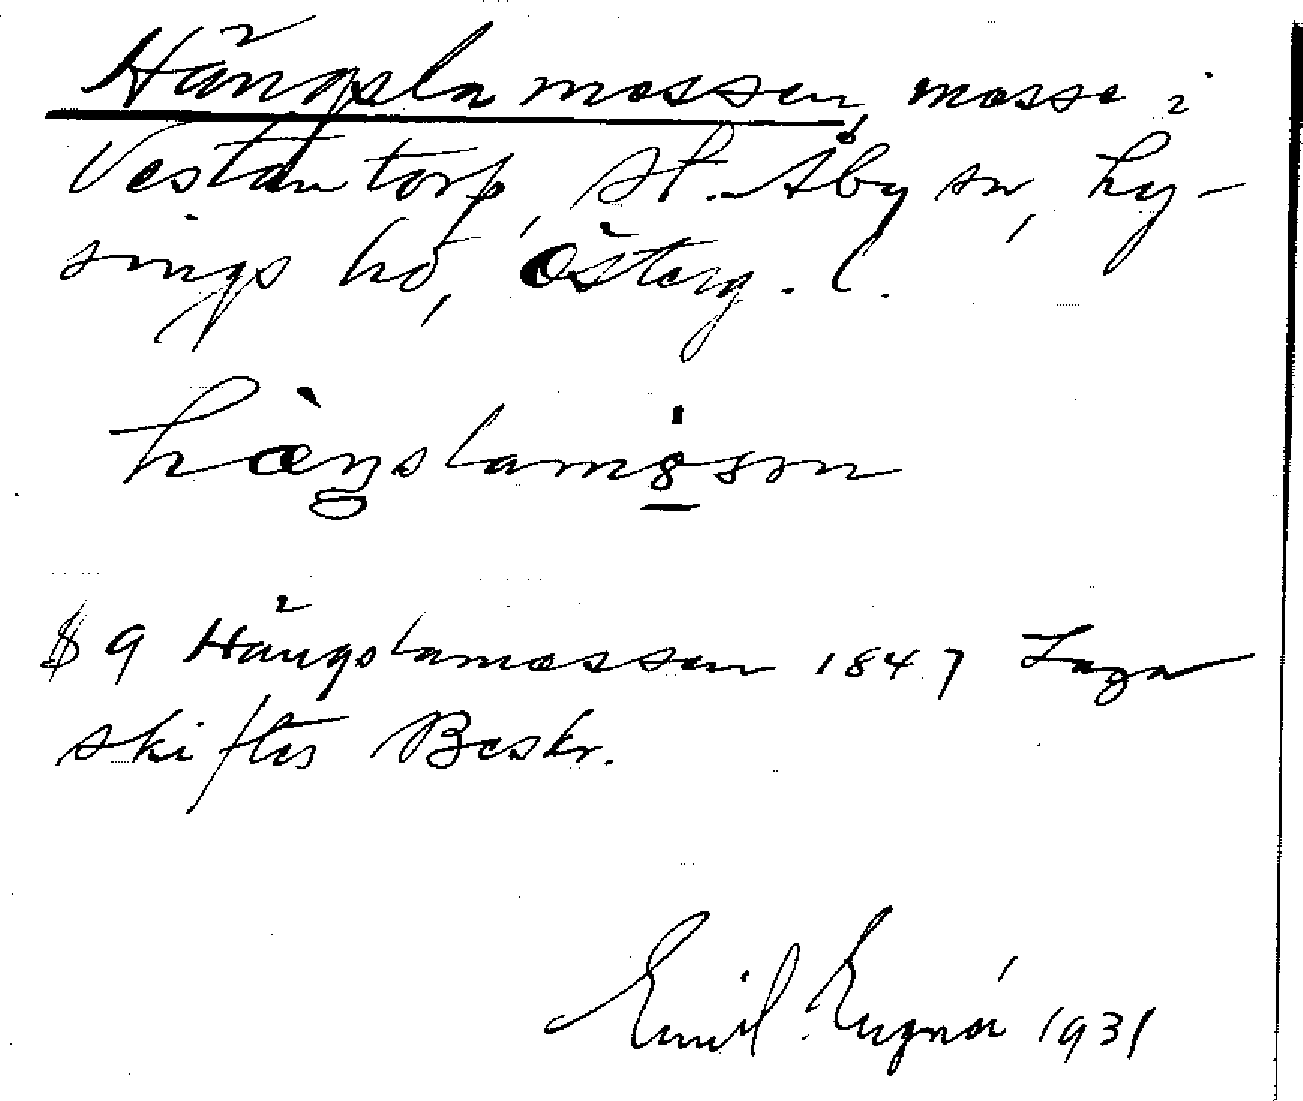 Hängsla mossen, mosse i
Vestantorp, St. Åby sn, Ly-
sings hd, Österg. l.
hæ̀ŋslamȯson
§ 9 Hängslamossen 1847 Laga
skiftes Beskr.
Emil 1931